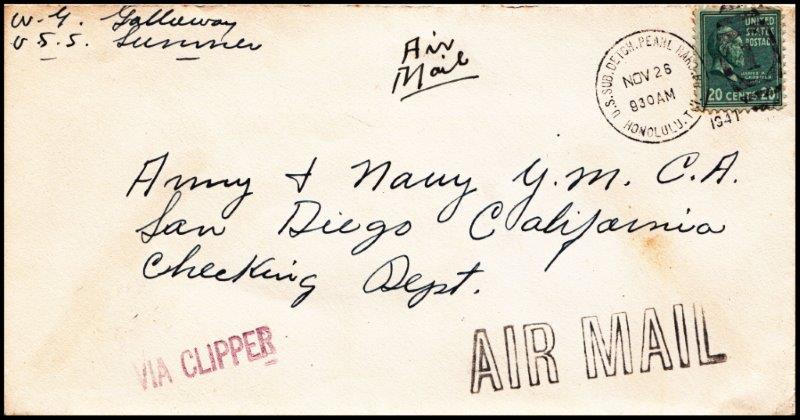 W. G. Galloway
U.S.S. Sumner
Air
Mail
U.S. SUB. DETCH. PEARL HARB.
NOV 26
930AM
HONOLULU. T.H.
1941
UNITED
STATES
POSTAGE
JAMES A.
GARFIELD
20 CENTS 20
Army & Navy Y.M.C.A.
San Diego California
Checking Dept.
VIA CLIPPER
AIR MAIL